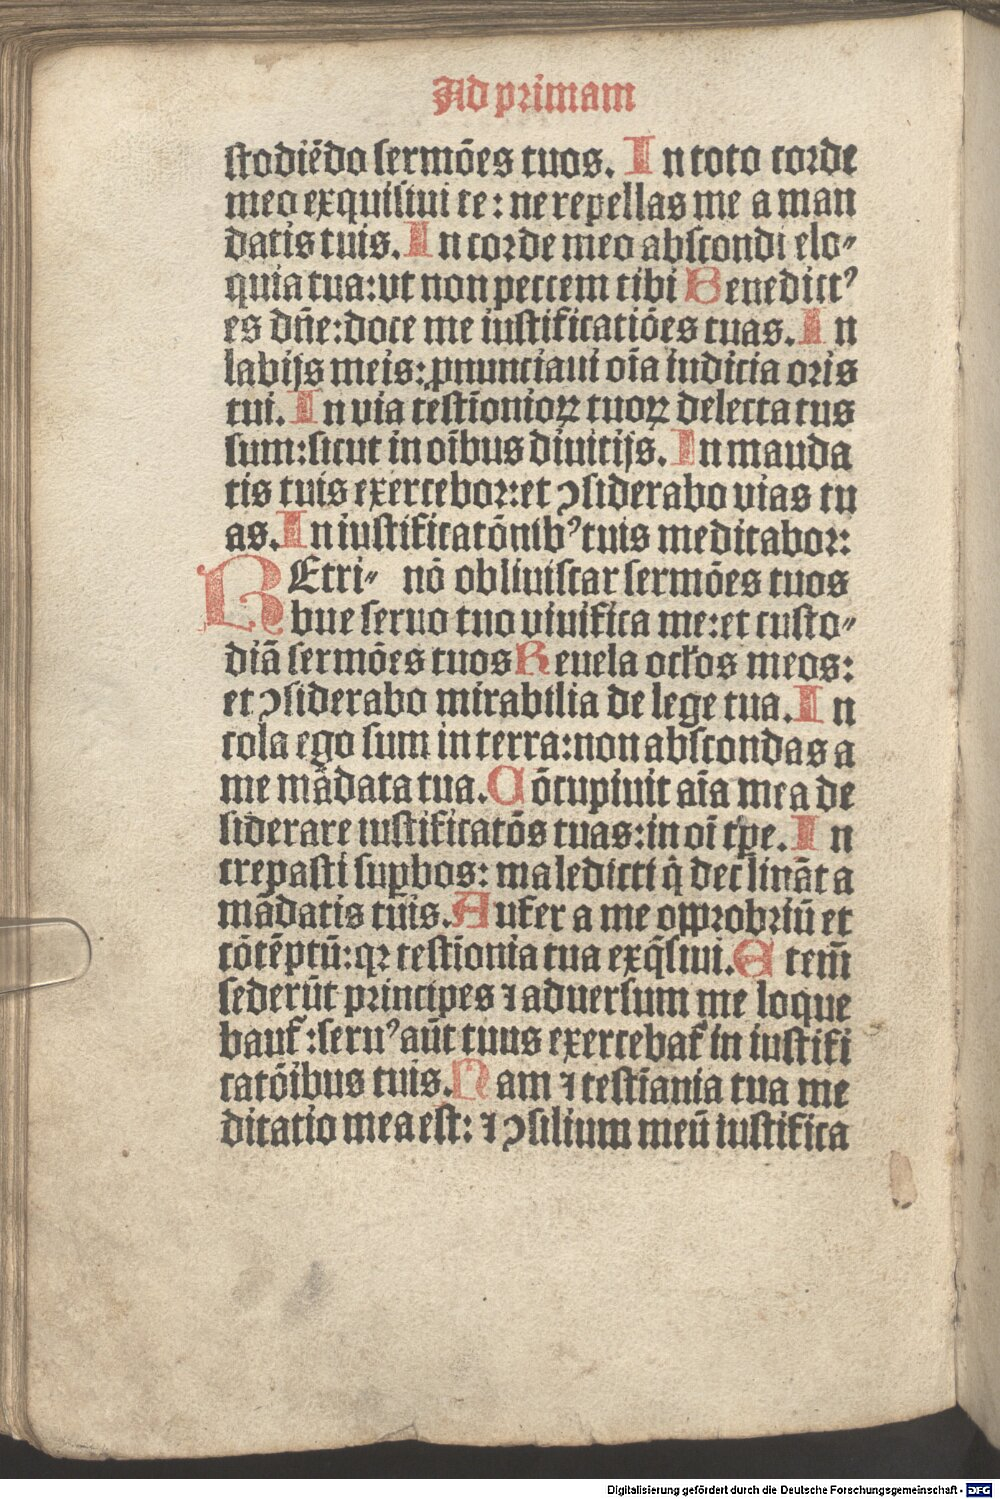 Ad primam
stodiẽdo sermões tuos. In toto corde
meo exquisiui te: ne repellas me a man
datis tuis. In corde meo abscondi elo⸗
quia tua: ut non peccem tibi Benedictꝰ
es dñe: doce me iustificatiões tuas. In
labijs meis: ꝓnunciaui oĩa iudicia oris
tui. In via testĩonioꝝ tuoꝝ delectatus
sum: sicut in oĩbus diuitijs. In manda
tis tuis exercebor: et ꝯsiderabo vias tu
as. In iustificatõnibꝰ tuis meditabor:
REtri⸗ nõ obliuiscar sermões tuos
bue seruo tuo viuifica me: et custo⸗
diã sermões tuos Reuela ocłos meos:
et ꝯsiderabo mirabilia de lege tua. In
cola ego sum in terra: non abscondas a
me mãdata tua. Cõcupiuit aĩa mea de
siderare iustificatõs tuas: in oĩ tꝑe. In
crepasti suꝑbos: maledicti q̇ declinãt a
mãdatis tuis. Aufer a me opprobriũ et
cõtẽptũ: qꝛ testĩonia tua exq̃siui. Etem̃
sederũt principes ⁊ aduersum me loque
banť: seruꝰ aũt tuus exercebať in iustifi
catõibus tuis. Nam ⁊ testĩania tua me
ditatio mea est: ⁊ ꝯsilium meũ iustifica
Digitalisierung gefördert durch die Deutsche Forschungsgemeinschaft - DFG